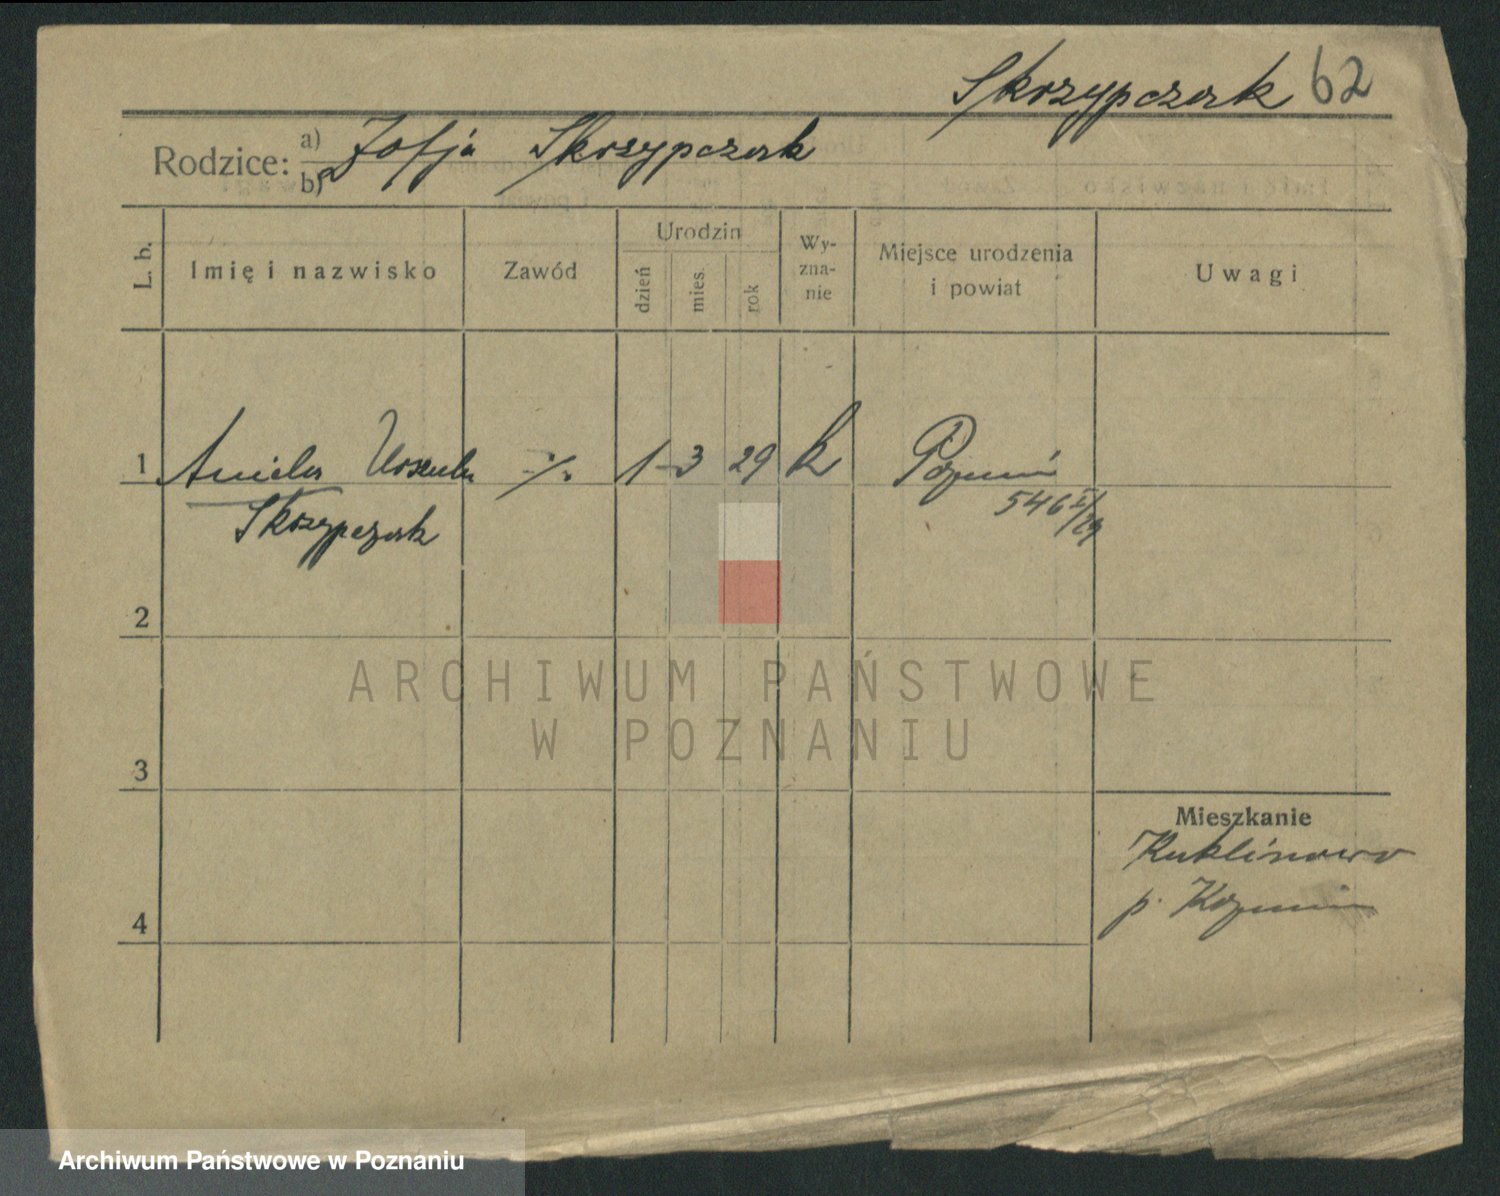 Skrzypczak 62
Rodzice: a) Zofja Skrzypczak
b)
L. b.
Imię i nazwisko
Zawód
Urodzin
dzień
mies.
rok
Wy-
zna-
nie
Miejsce urodzenia
i powiat
Uwagi
1 Aniela Urszula -"/. 1 - 3 29 k Poznań
Skrzypczak
546 I/29
2
3
4
Mieszkanie
Kuklinowo
p. Kozmin
ARCHIWUM PAŃSTWOWE
W POZNANIU
Archiwum Państwowe w Poznaniu